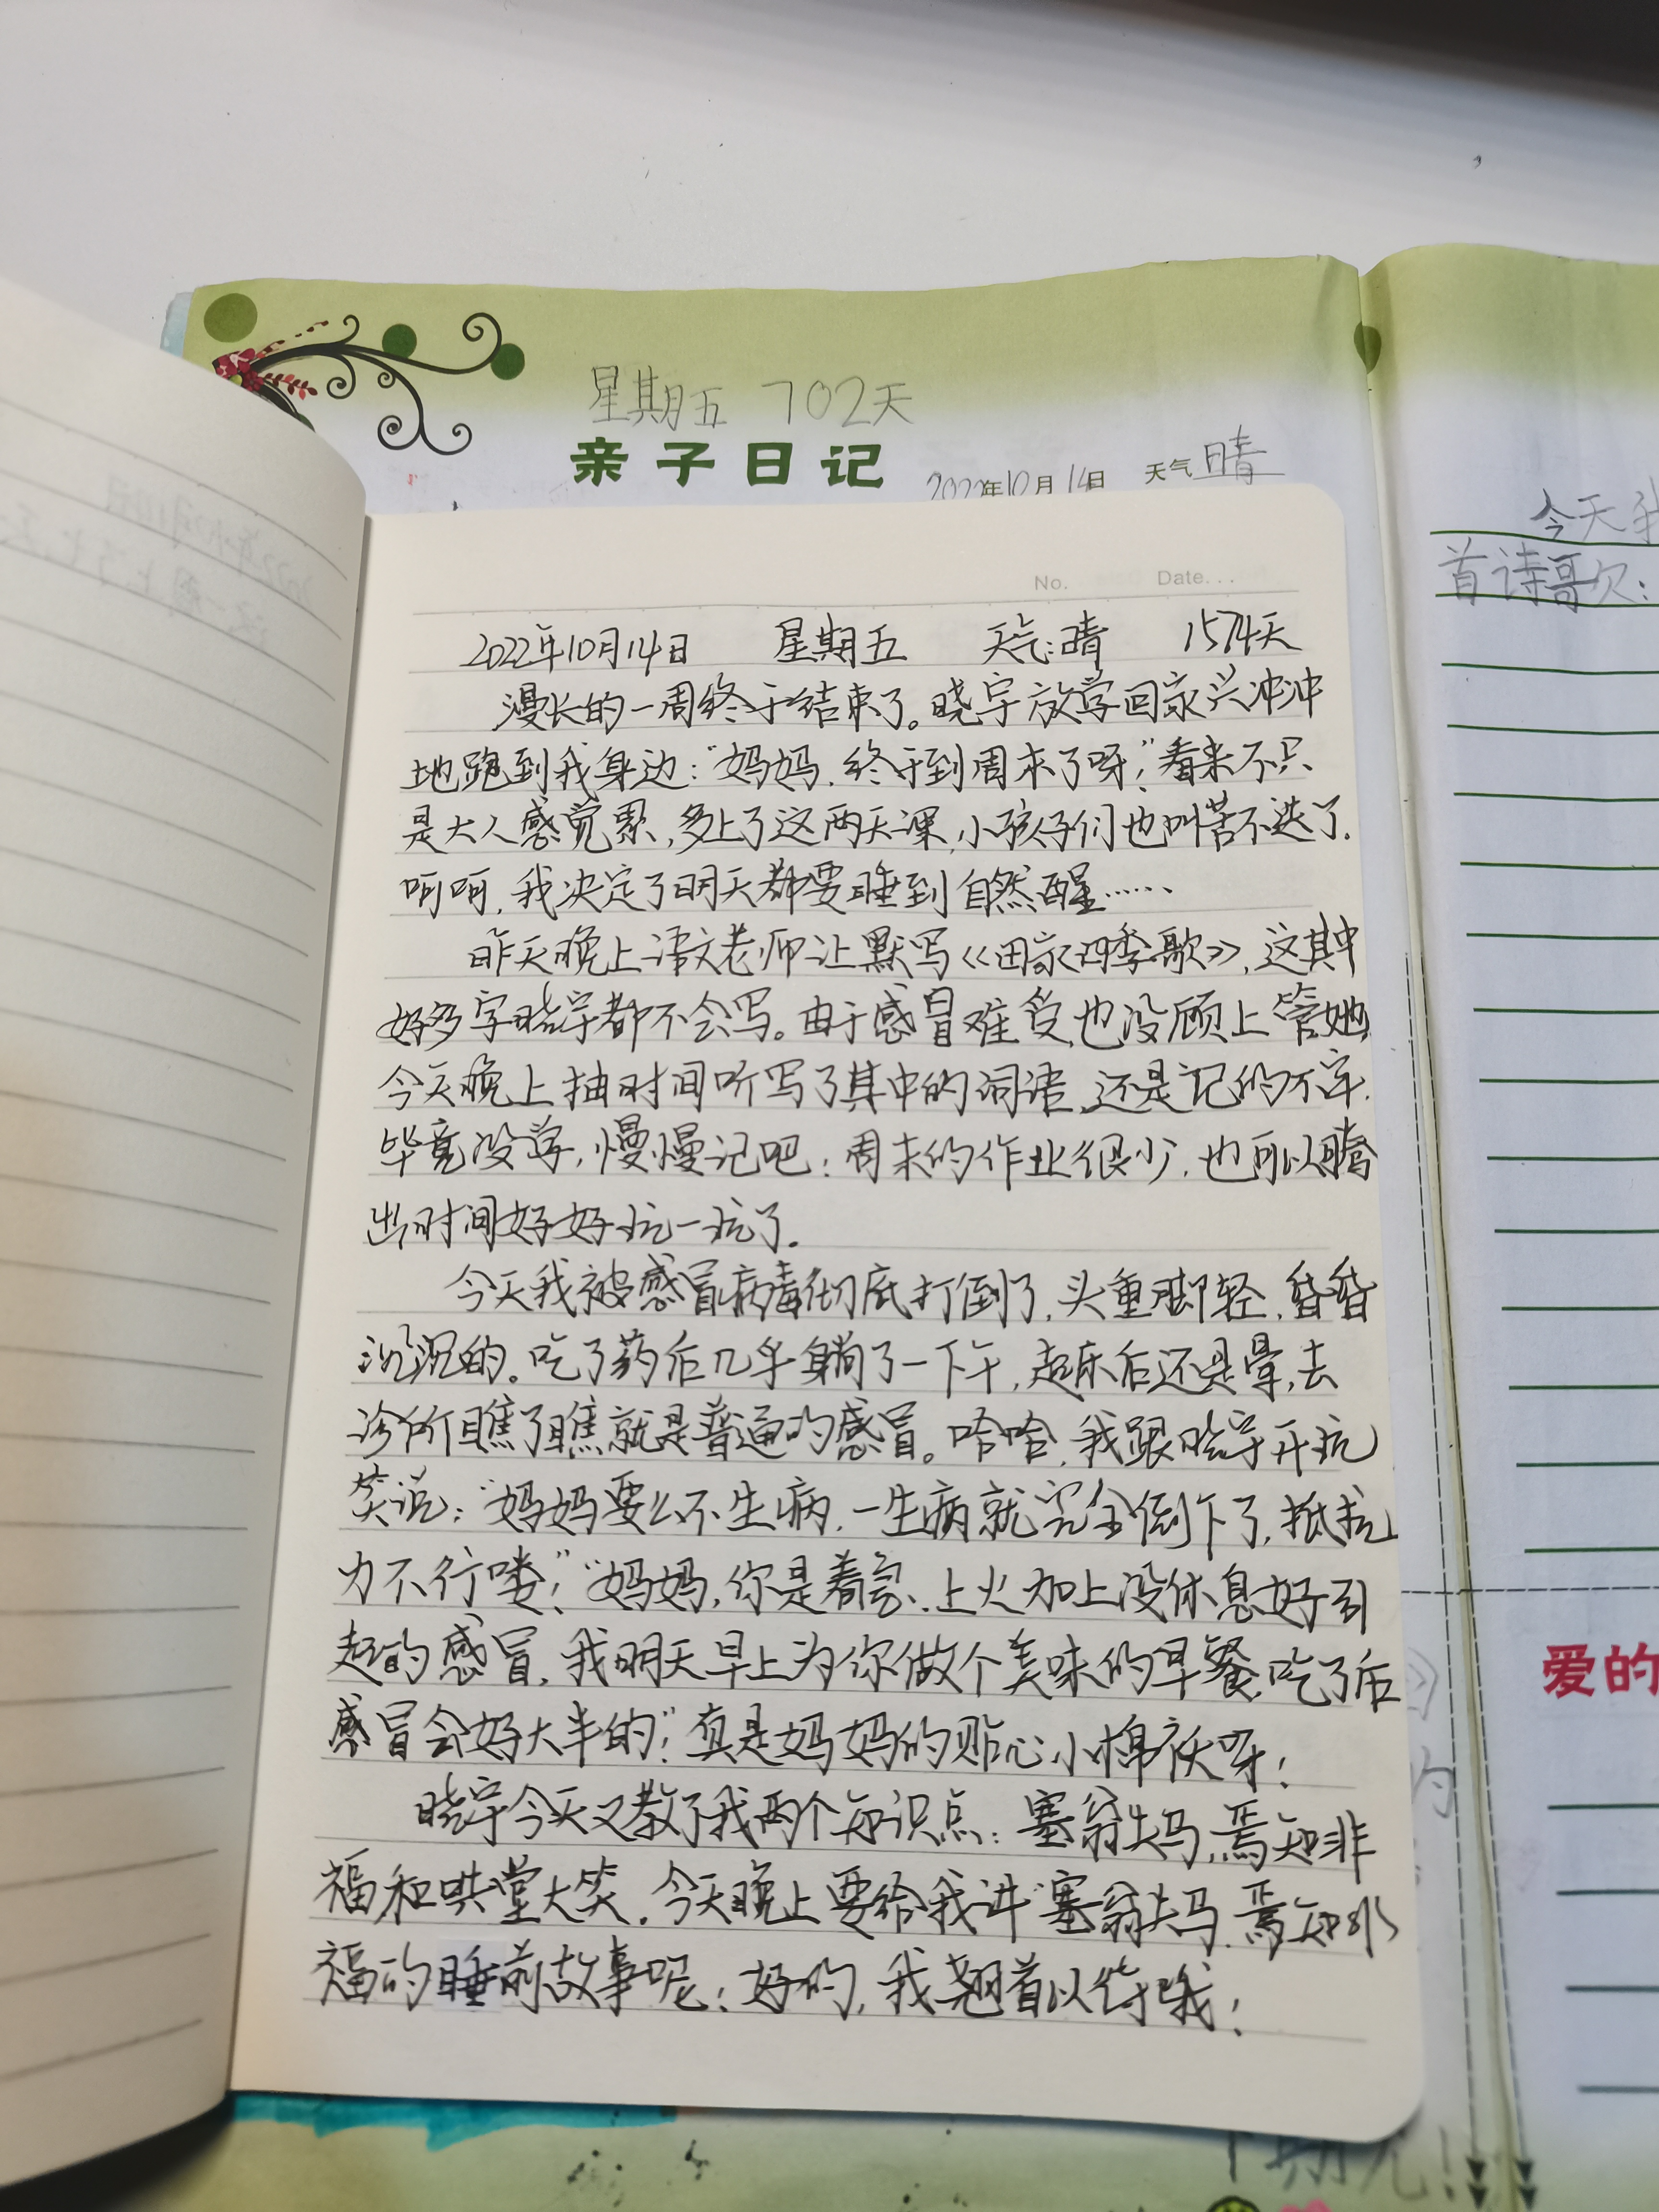 星期五 702天
亲子日记
2022年10月14日 天气 晴
No. Date...
2022年10月14日 星期五 天气:晴 1574天
漫长的一周终于结束了。晓宇放学回家兴冲冲
地跑到我身边:“妈妈,终于到周末了呀!”看来不只
是大人感觉累,多上了这两天课,小孩子们也叫苦不迭了.
呵呵,我决定了明天都要睡到自然醒……
昨天晚上语文老师让默写《田家四季歌》,这其中
好多字晓宇都不会写。由于感冒难受,也没顾上管她,
今天晚上抽时间听写了其中的词语,还是记的不牢.
毕竟没学,慢慢记吧!周末的作业很少,也可以腾
出时间好好玩一玩了.
今天我被感冒病毒彻底打倒了,头重脚轻,昏昏
沉沉的。吃了药后几乎躺了一下午,起床后还是晕,去
诊所瞧了瞧就是普通的感冒。哈哈,我跟晓宇开玩
笑说:“妈妈要么不生病,一生病就完全倒下了,抵抗
力不行喽!”“妈妈,你是着急、上火加上没休息好引
起的感冒,我明天早上为你做个美味的早餐,吃了后
感冒会好大半的!”真是妈妈的贴心小棉袄呀!
晓宇今天又教了我两个知识点:塞翁失马,焉知非
福和哄堂大笑.今天晚上要给我讲“塞翁失马,焉知非
福的睡前故事呢!好的,我翘首以待哦!
今天我
首诗哥欠:
爱的